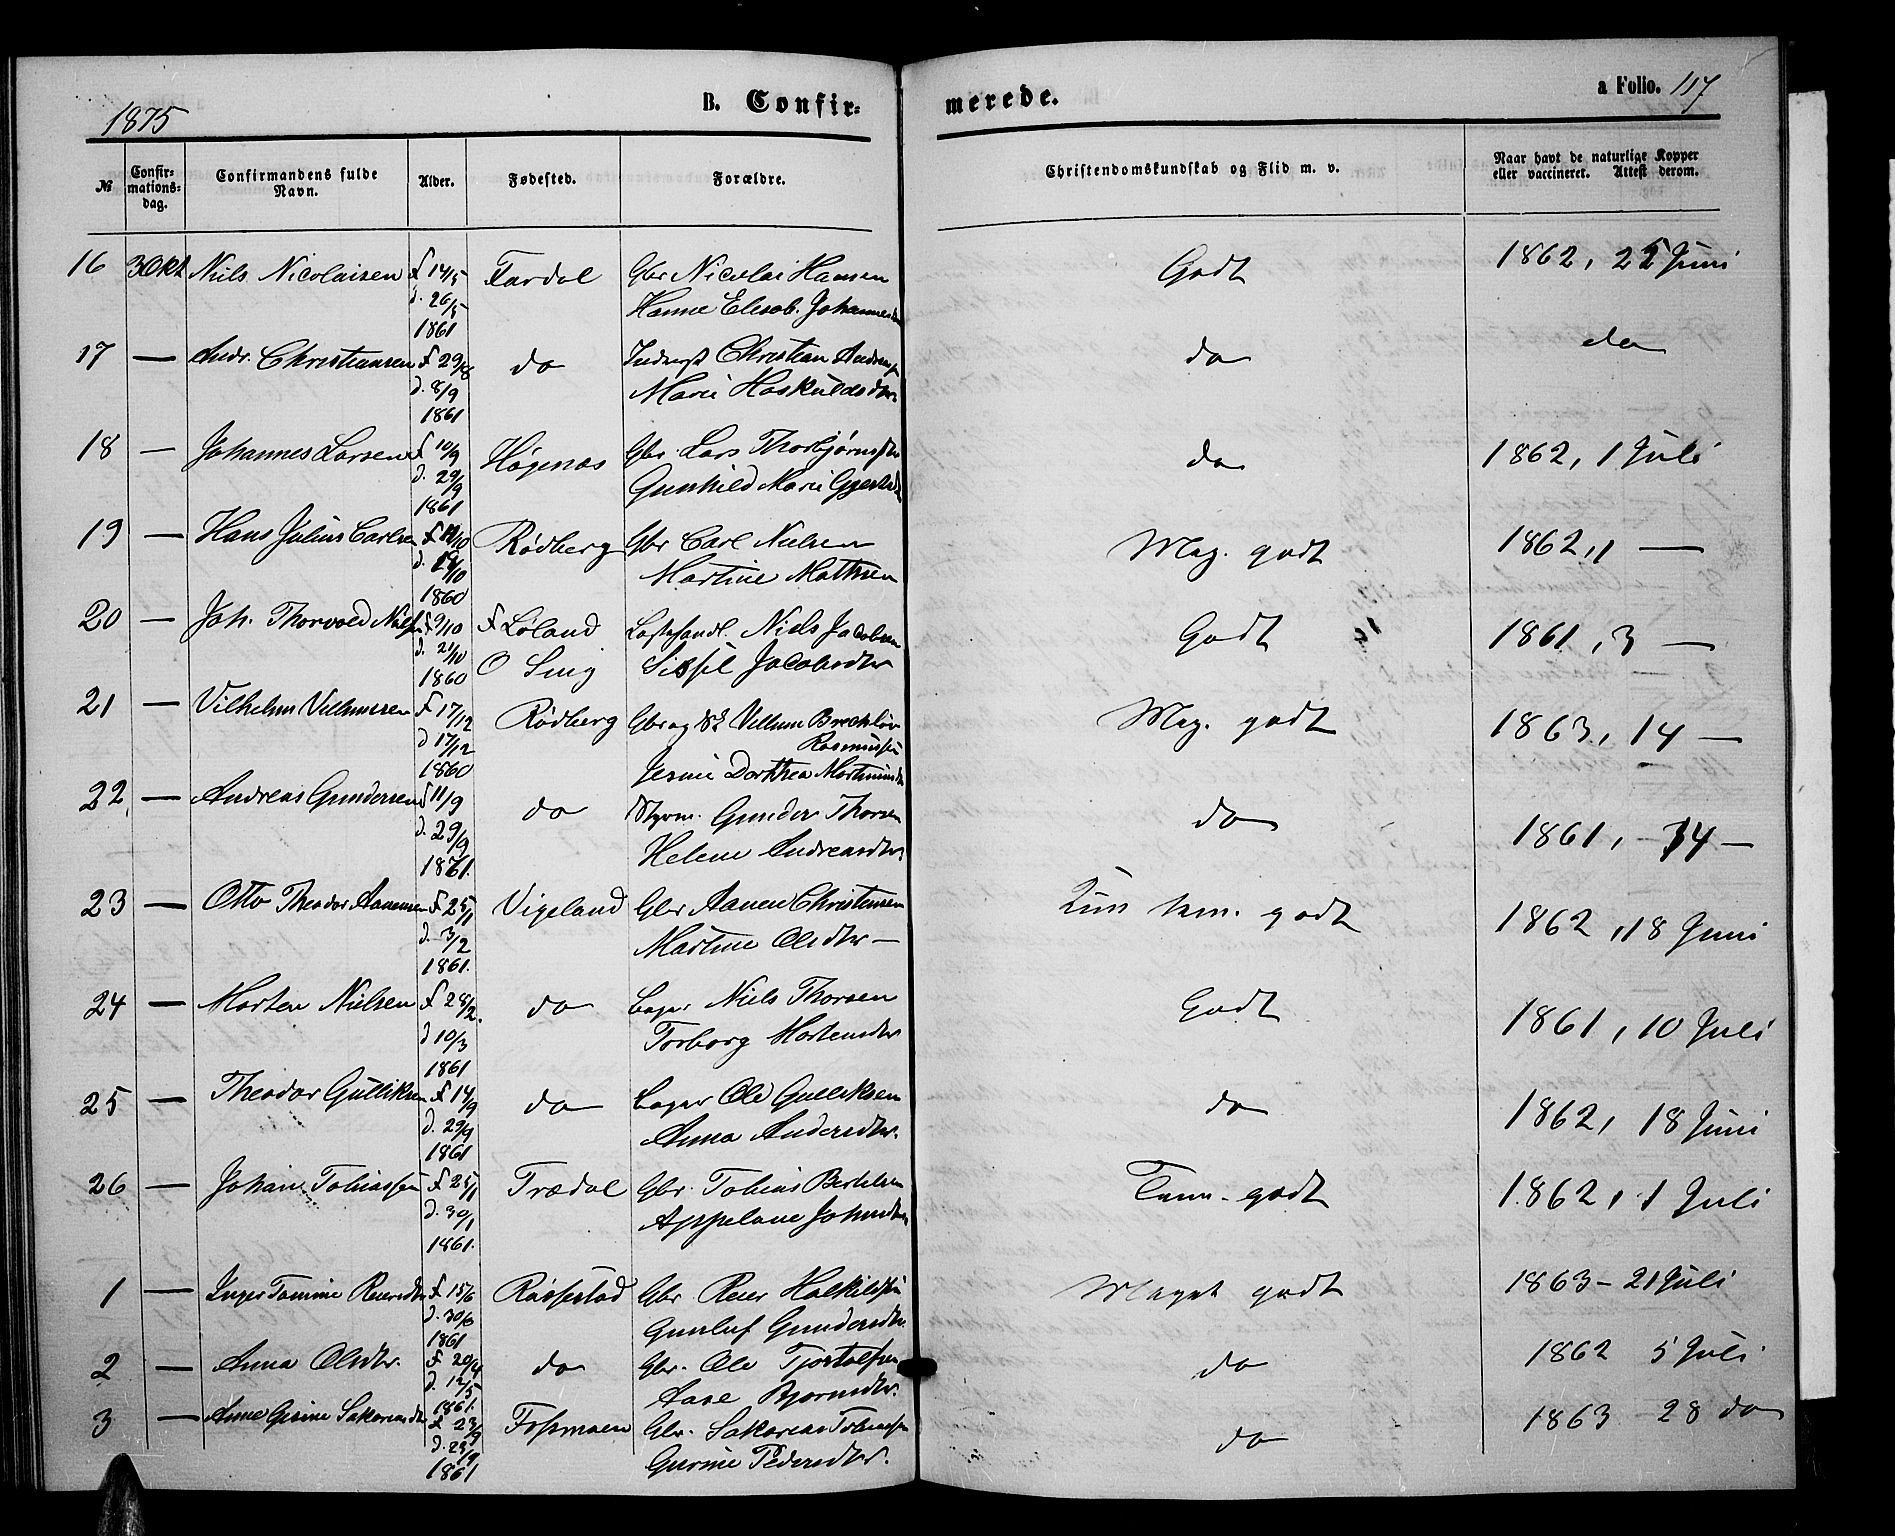 1875
B. Confir- merede.
a Folio. 117
№ Confir-mations-dag. Confirmandens fulde Navn. Alder. Fødested. Forældre. Christendomskundskab og Flid m. v. Naar havt de naturlige Kopper eller vaccineret. Attest derom.
16 3 Okt Niels Nicolaisen f 14/5 Fardal Gbr Nicolai Hansen Godt 1862, 25 Juni
d. 26/5 Hanne Elisab. Johannesdtr
1861
17 — Andr. Christiansen f 29/8 do Inderst Christian Andreas do do
d. 8/9 Marie Haskuldsdtr
1861
18 — Johannes Larsen f 10/9 Høgenæs Gbr. Lars Thorbjørnsen do 1862, 1 Juli
d. 29/9 Gunhild Marie
1861
19 — Hans Julius Carlsen Rødberg Gbr Carl Nielsen Meg. godt 1862, 1 —
d. Martine
1860
20 — Joh. Thorvald Nielsen f 9/10 f Løland Niels Jacobsen Godt 1861, 3 —
d. 21/10 Sissil Jacobsdtr
1860
21 — Vilhelm Villumsen f 17/12 Rødberg Gbr og Villum Meg. godt 1863, 14 —
d 17/12 Rasmussen
1860 Dorthea
22 — Andreas Gundersen f 11/9 do Styrm. Gunder Thorsen do 1861, — 14 —
d. 29/9 Helene Andreasdtr
1861.
23 — Otto Theodor Aanensen f 25/1 Vigeland Gbr Aanen Christensen Kun tem. godt 1862, 18 Juni
d. 3/2 Martine Olsdtr —
1861.
24 — Morten Nielsen f 28/2. do Niels Thorsen Godt 1861, 10 Juli
d 10/3 Torborg Mortensdtr
1861
25 — Theodor Gulliksen f 14/9 do Ole Gulliksen do 1862, 18 Juni
d. 29/9 Anna Andersdtr.
1861
26 — Johan Tobiassen f 25/1 Trædal Gbr. Tobias Bertelsen Tem. godt 1862, 1 Juli
d. 30/1 Appelone
1861.
1 — Inger Tomine Reiersdtr f 15/6 Røssestad Gbr Reier Meget godt 1863 — 21 Juli
d. 30/6 Gunluf Gundersdtr.
1861
2 — Anna Olsdtr. f 20/4 do Gbr. Ole do 1862 5 Juli
d. 12/5 Aase Bjørnsdtr.
1861.
3 — Anne Gurine Sakariasdtr f 23/9 Fossmoen Gbr. Sakarias Tobiassen do 1863 — 28 do
d. 29/9 Gurine Pedersdtr.
1861